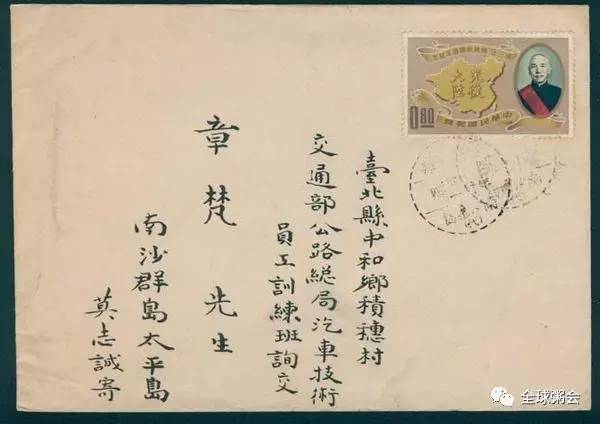 光復
大陸
中華民國郵票
0.80
臺北縣中和鄉積穗村
交通部公路総局汽車技術
員工訓練班詢交
章梵先生
南沙群島太平島
莫志誠寄
全球粥会